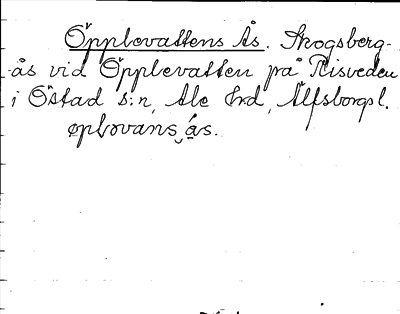 Öpplevattens Ås. Skogsberg-
ås vid Öpplevatten på Risveden
i Östad s:n, Ale hrd, Älfsborgs l.
øplovans ás.